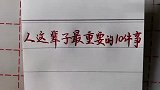 人这辈子最重要的10件事